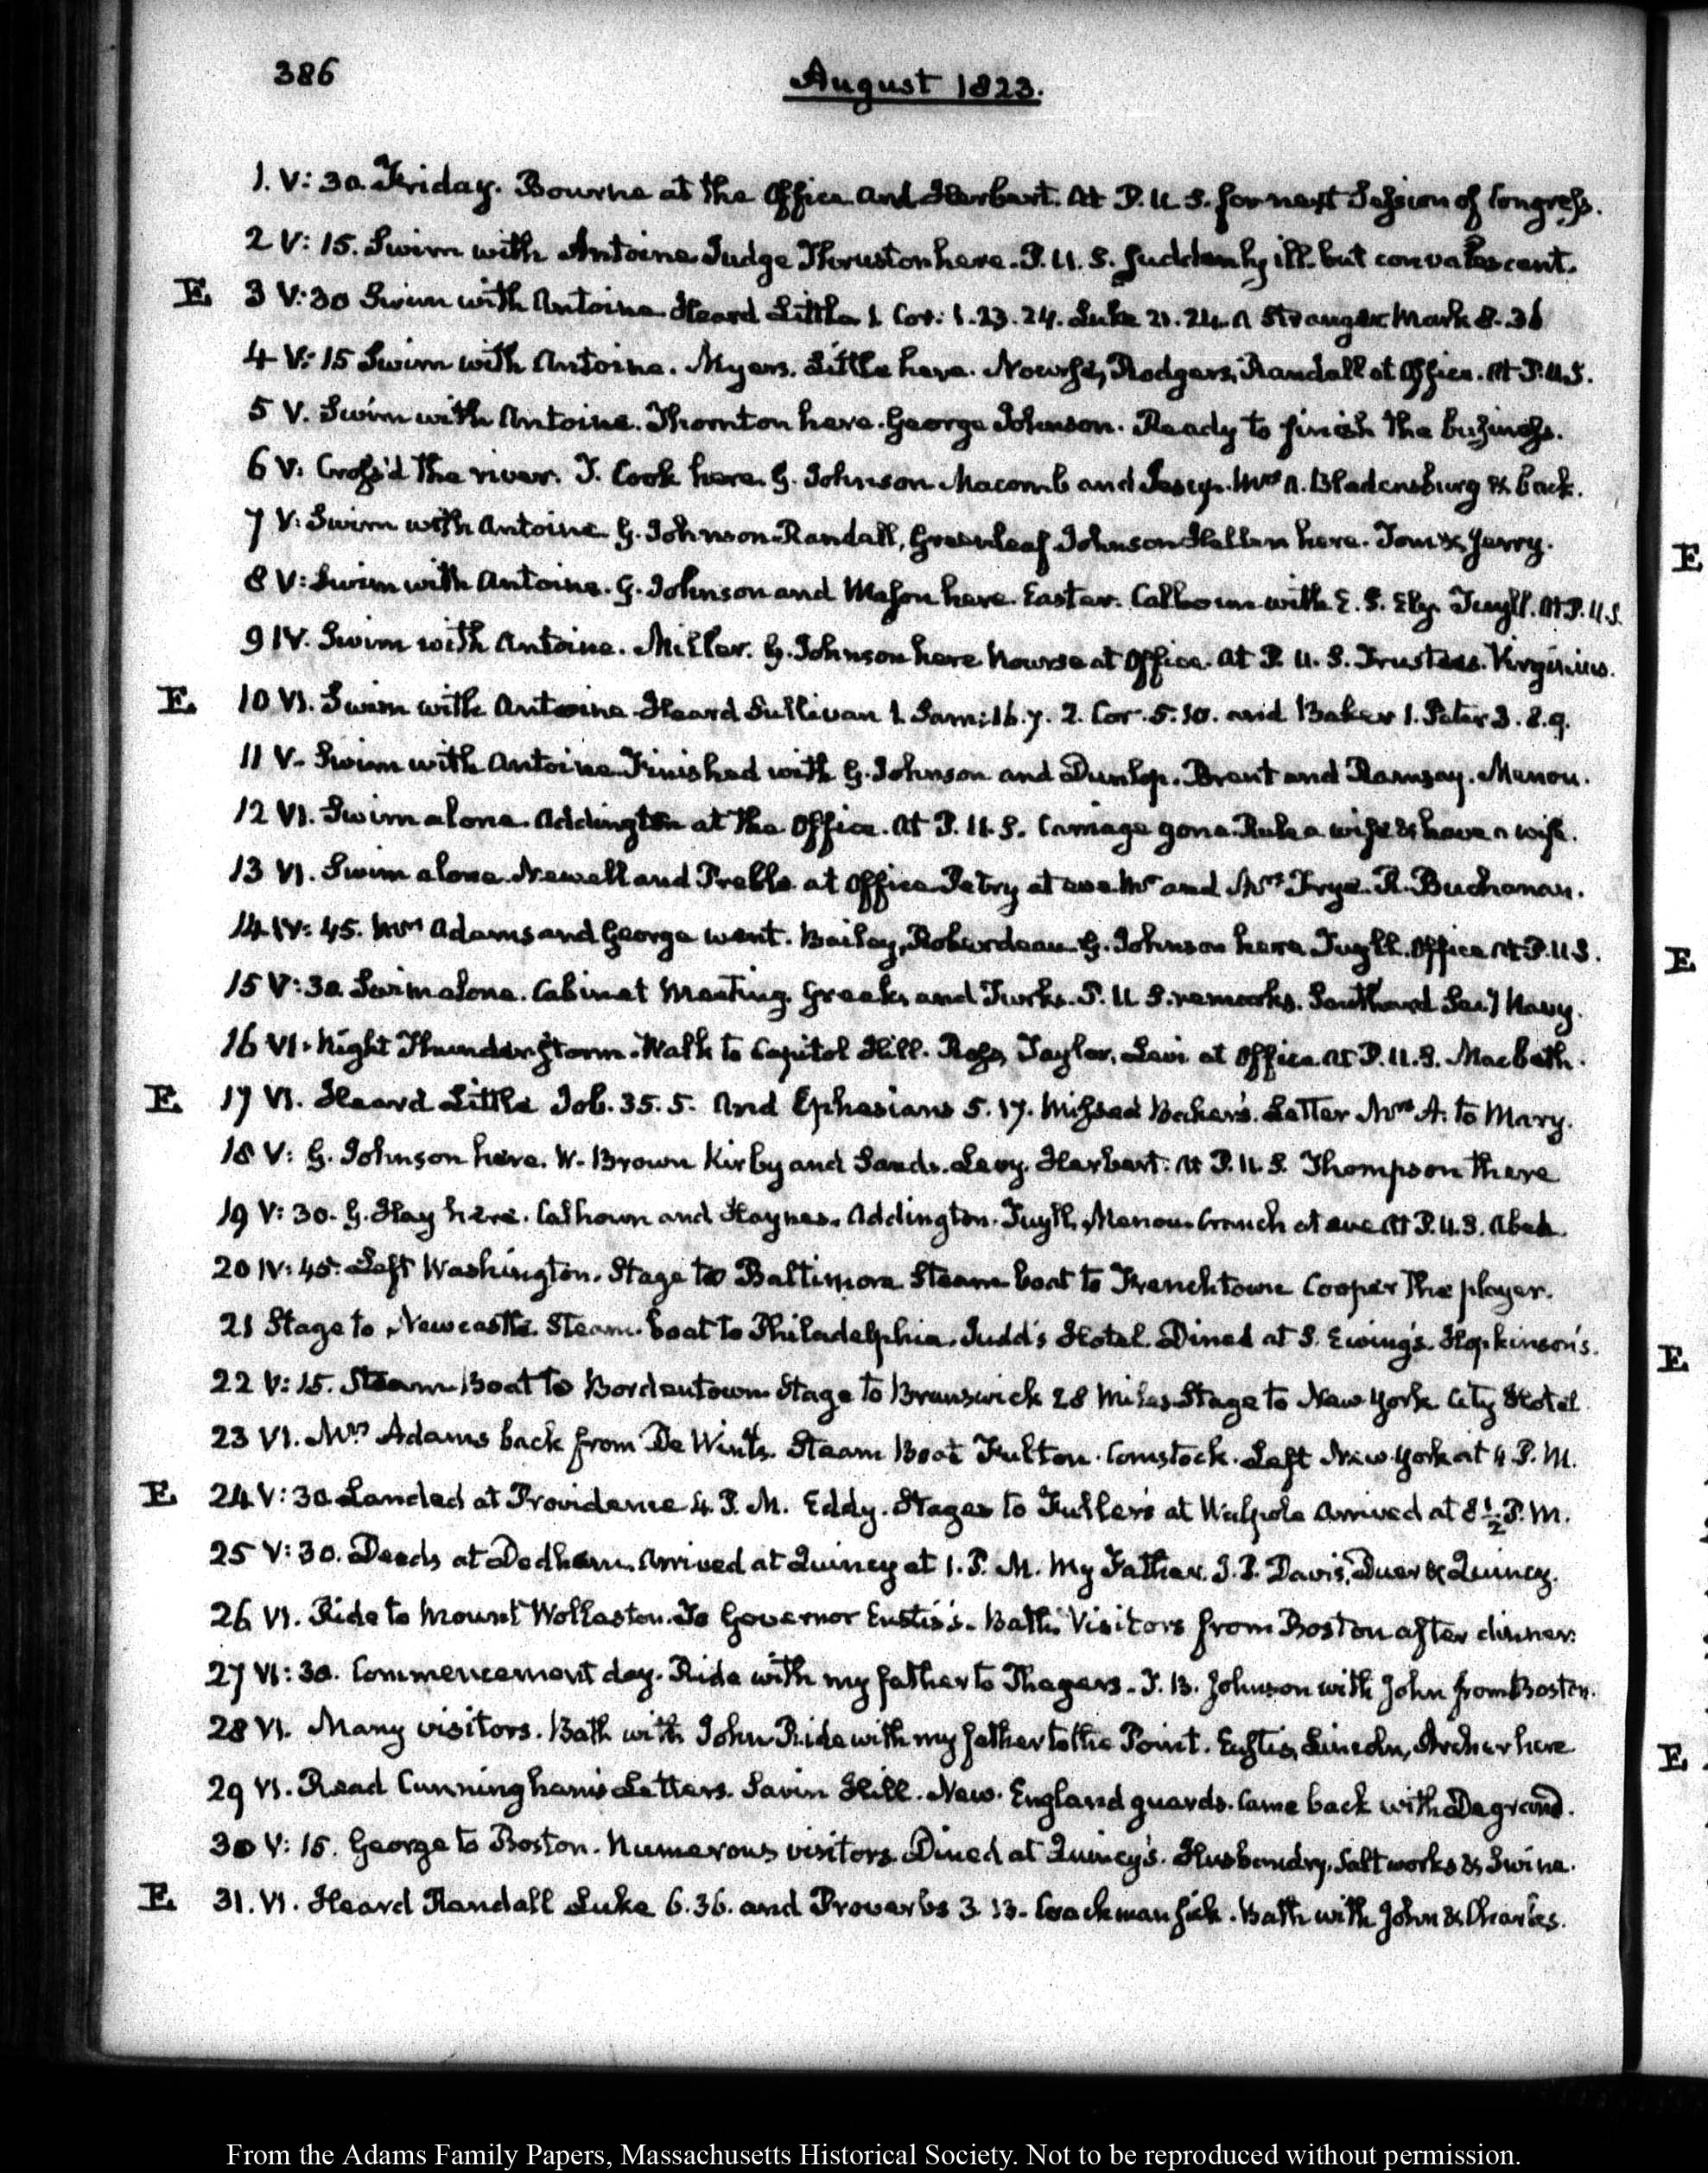 386
August 1823.
1. V: 30. Friday. Bourne at the Office and Herbert. At P. U S. for next Session of Congress.
2 V: 15. Swim with Antoine Judge Thruston here. P. U. S. suddenly ill. but convalescent.
E 3 V: 30 Swim with Antoine. Heard Little 1 Cor: 1.23.24. Luke 21.24. A Stranger Mark 8.36
4 V: 15 Swim with Antoine. Myers. Little here. Nourse, Rodgers, Randall at Office. At P.U.S.
5 V. Swim with Antoine. Thornton here. George Johnson. Ready to finish the business.
6 V: Cross'd the river. J. Cook here. G. Johnson Macomb and Jesup. Mrs A. Bladensburg & back.
7 V: Swim with Antoine G. Johnson Randall, Greenleaf Johnson Hellen here. Tom & Jerry.
8 V: Swim with Antoine. G. Johnson and Mason here. Easter. Calhoun with E. S. Ely. Tuyll. At P. U.S.
9 IV. Swim with Antoine. Miller. G. Johnson here Nourse at Office. At P. U. S. Trustees. Virginius.
E 10 VI. Swim with Antoine. Heard Sullivan 1. Sam: 16.7. 2. Cor. 5.10. and Baker 1. Peter 3. 8.9.
11 V. Swim with Antoine Finished with G. Johnson and Dunlop. Brent and Ramsay. Menou.
12 VI. Swim alone. Addington at the Office. At P. U. S. Carriage gone. Rule a wife & have a wife.
13 VI. Swim alone. Newell and Preble at Office Petry at eve Mr and Mrs Frye. R. Buchanan.
14 IV: 45. Mrs Adams and George went. Bailey, Roberdeau. G. Johnson here Tuyll. Office At P.U.S.
15 V: 30. Swim alone. Cabinet Meeting. Greeks and Turks. P. U S. remarks. Southard Secy Navy.
16 VI. Night Thunder storm. Walk to Capitol Hill. Ross, Taylor, at Office. At P. U. S. Macbeth.
E 17 VI. Heard Little Job. 35. 5. And Ephesians 5. 17. Missed Baker's. Letter Mrs A. to Mary.
18 V: G. Johnson here. W. Brown Kirby and Sands. Levy. Herbert. At P. U. S. Thompson there
19 V: 30. G. Hay here. Calhoun and Haynes. Addington. Tuyll, Menou. Cranch at eve At P.U.S. Abed.
20 IV: 45. Left Washington. Stage to Baltimore Steam boat to Frenchtown Cooper The player.
21 Stage to Newcastle. Steam boat to Philadelphia. Judd's Hotel. Dined at S. Ewing's. Hopkinson's.
22 V: 15. Steam Boat to Bordentown Stage to Brunswick 28 Miles Stage to New York City Hotel
23 VI. Mrs Adams back from De Wint's. Steam Boat Fulton. Comstock. Left New York at 4 P. M.
E 24 V: 30. Landed at Providence 4. P. M. Eddy. Stages to Fuller's at Walpole Arrived at 8 1/2 P. M.
25 V: 30. Deeds at Dedham. Arrived at Quincy at 1. P. M. My Father. J. P. Davis, Duer & Quincy.
26 VI. Ride to Mount Wollaston. To Governor Eustis's. Bath. Visitors from Boston after dinner.
27 VI: 30. Commencement day. Ride with my father to Thayers. T. B. Johnson with John from Boston.
28 VI. Many visitors. Bath with John Ride with my father to the Point. Eustis, Lincoln, Archer here
29 VI. Read Cunningham's Letters. Savin Hill. New. England guards. Came back with Degrand.
30 V: 15. George to Boston. Numerous visitors Dined at Quincy's. Husbandry. Salt works & Swine.
E 31. VI. Heard Randall Luke 6.36. and Proverbs 3 13. Coachman sick. Bath with John & Charles.
E
E
E
E
From the Adams Family Papers, Massachusetts Historical Society. Not to be reproduced without permission.